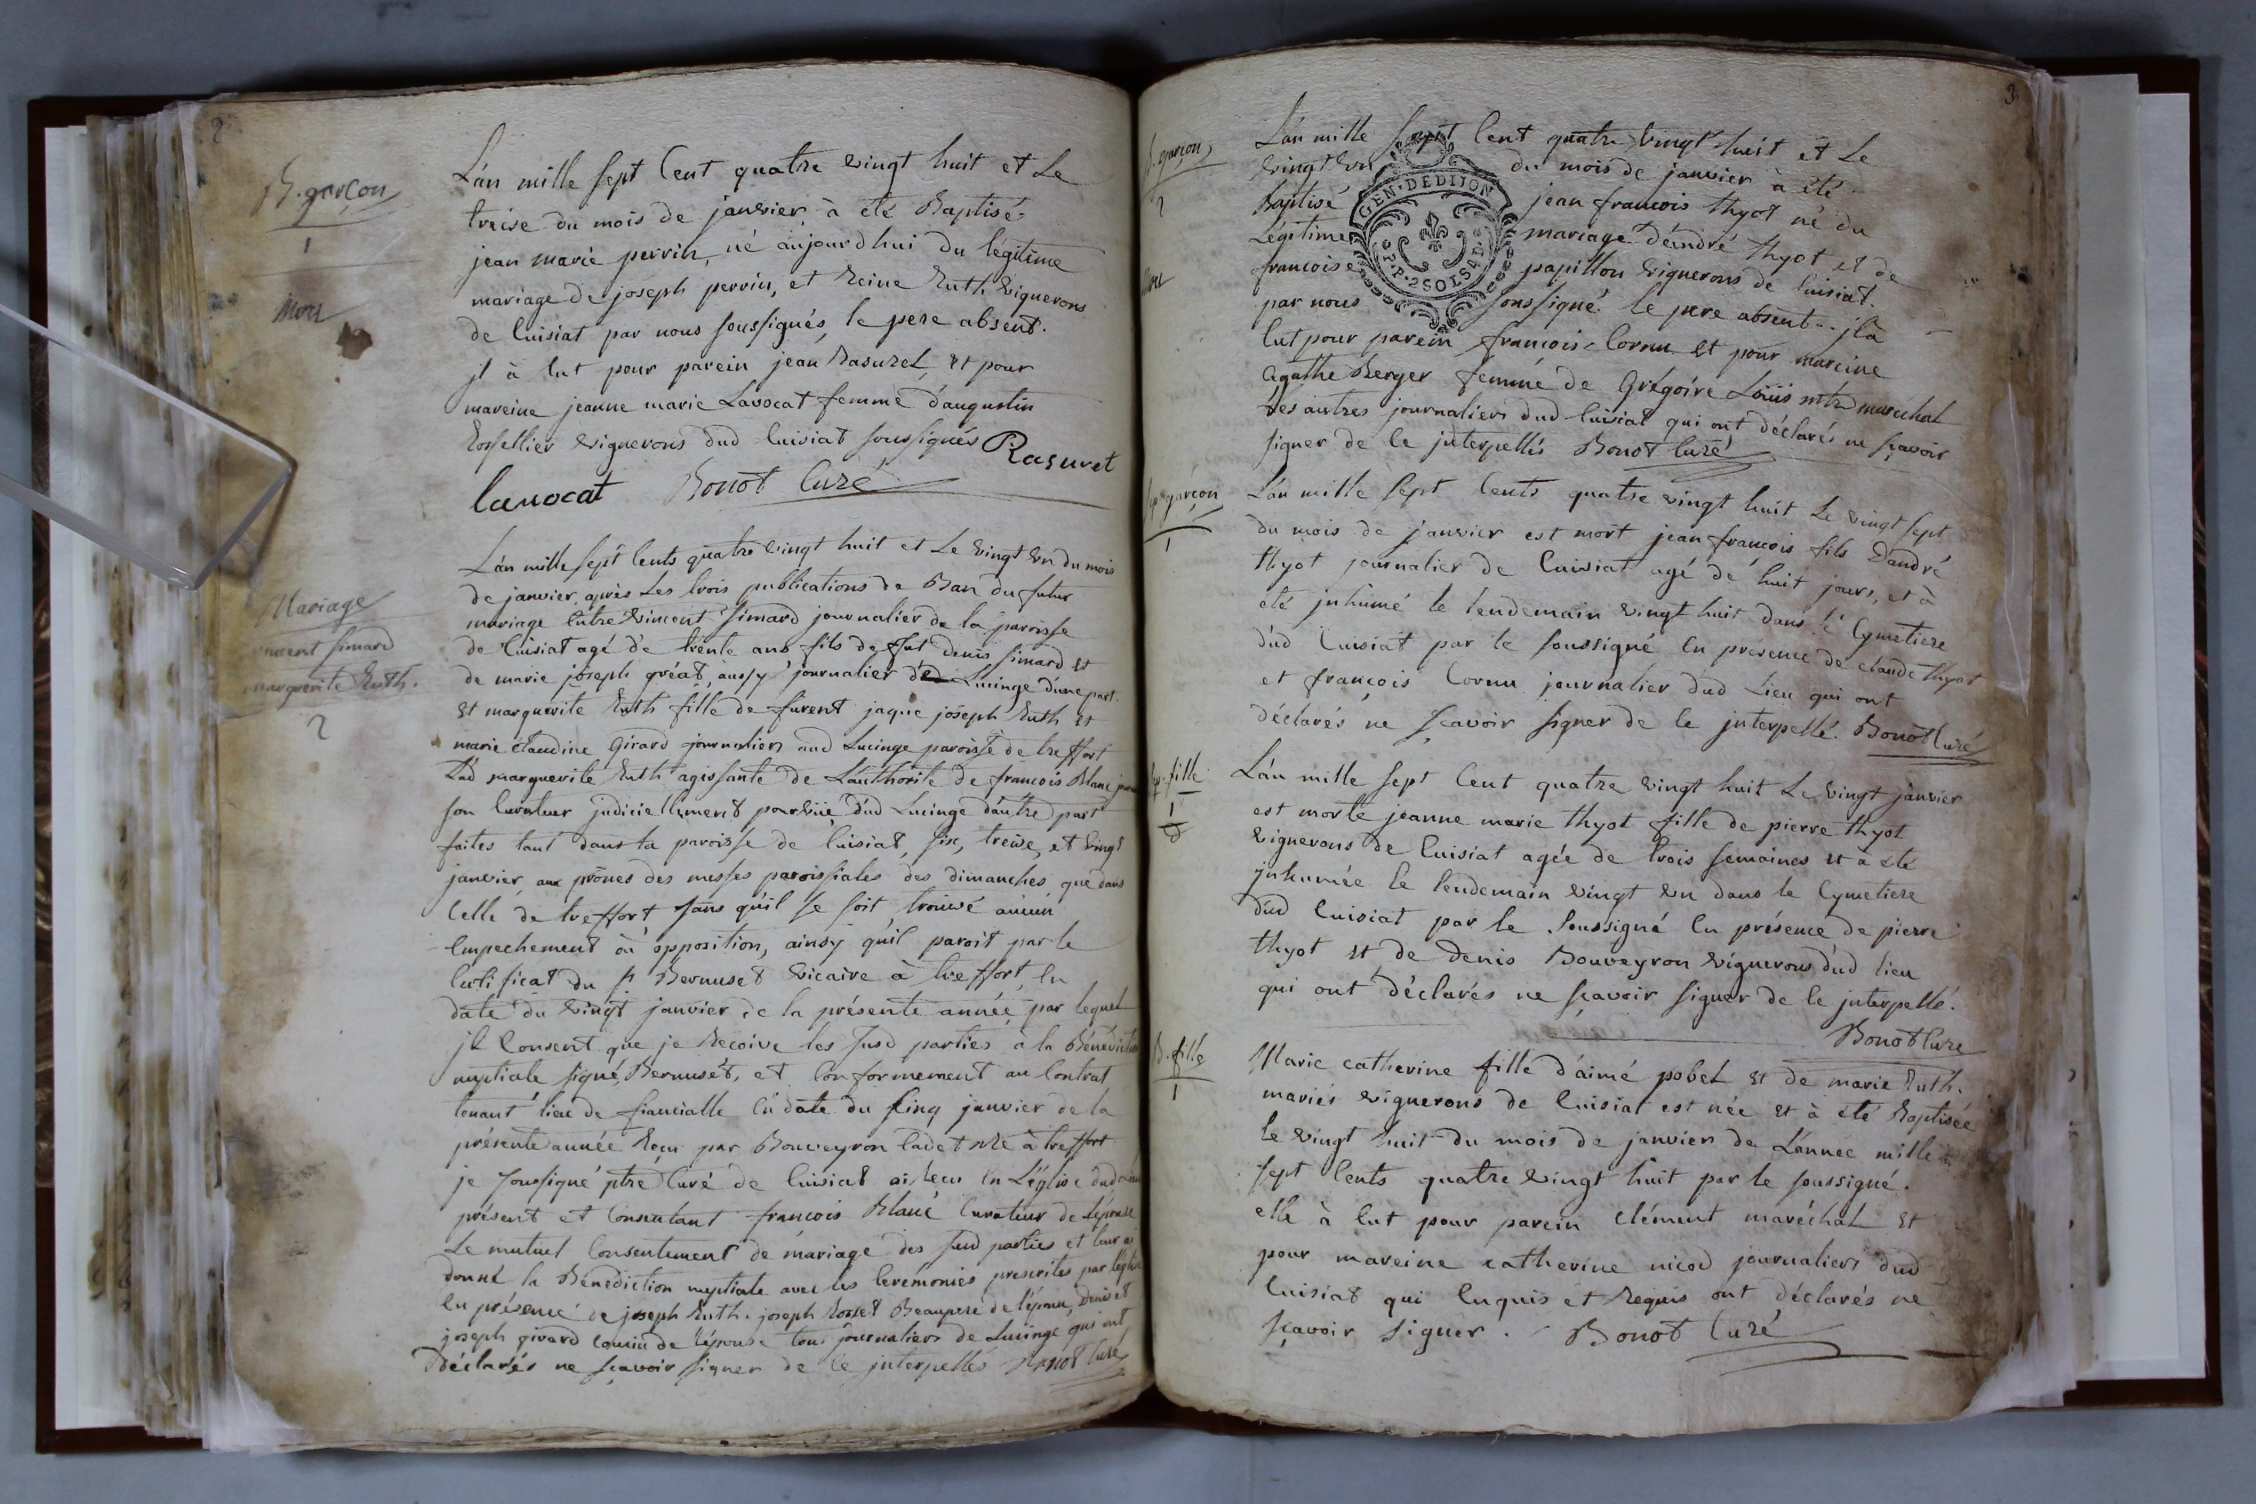 2
B. garçon
1
mort
L'an mille sept Cent quatre vingt huit et Le
treise du mois de janvier à été Baptisé
jean marie perrin, né aujourd hui du légitime
mariage de joseph perrin, et Reine Ruth vignerons
de Cuisiat par nous soussignés, le pere absent.
jl à Eut pour parein jean Rasurel, et pour
mareine jeanne marie Lavocat femme d'augustin
vignerons dud Cuisiat soussignés Rasuret
lavocat Bonot Curé
Mariage
vincent simard
marguerite Ruth.
2
L'an mille sept Cents quatre vingt huit et Le vingt un du mois
de janvier, après Les trois publications de Ban du futur
mariage Entre vincent simard journalier de la paroisse
de Cuisiat agé de trente ans fils de fut denis simard et
de marie joseph gréat, aussy journalier de Lucinge d'une part
et marguerite Ruth fille de furent jaque joseph Ruth et
marie claudine Girard journaliers aud Lucinge paroisse de treffort
Lad marguerite Ruth agissante de L'authorité de francois Blanc
son Curateur judiciellement pourvüe, dud Lucinge d'autre part
faites tant dans la paroisse de Cuisiat, six, treise, et vingt
janvier, aux prônes des messes paroissiales des dimanches, que dans
Celle de treffort sans qu'il se soit trouvé aucun
Empechement où opposition, ainsy qu'il paroit par le
Certificat du sr Bernuset vicaire à treffort, En
date du vingt janvier de la présente année par lequel
jl Consent que je Recoive les susd parties à la Bénédiction
nuptiale signé Bernusét, et Conformement au Contrat
tenant lieu de fiancialle En date du Cinq janvier de la
présente année Reçu par Bouveyron Cadet nre à treffort
je soussigné ptre Curé de Cuisiat ai Reçu En L'église dud
présent et Consentant francois Blanc Curateur de L'épouse
Le mutuel Consentement de mariage des susd parties et leur ai
donné la Bénédiction nuptiale avec les Cérémonies prescrites par l'église
En présence de joseph Ruth. joseph Rosset Beaupere de l'époux, denis et
joseph girard cousin de l'épouse tous journaliers de Lucinge qui ont
déclarés ne sçavoir signer de Ce jnterpellés Bonot Curé
3
B. garçon
2
mort
L'an mille sept Cent quatre vingt huit et Le
vingt un du mois de janvier à été
Baptisé jean francois thyot né du
Légitime mariage d'andré thyot et de
francoise papillon vignerons de Cuisiat.
par nous soussigné le pere absent.. jl à
Eut pour parein francois Cornu et pour mareine
agathe Berger femme de Grégoire Loüis mtre maréchal
Les autres journaliers dud Cuisiat qui ont déclarés ne sçavoir
signer de Ce jnterpellés Bonot Curé
GEN. DE DIJON
P.P. 2SOLS4D.
Sep. garçon
1
L'an mille sept Cents quatre vingt huit Le vingt sept
du mois de janvier est mort jean francois fils D'andré
thyot journalier de Cuisiat agé de huit jours, et à
été jnhumé le lendemain vingt huit dans le Cymetiere
dud Cuisiat par le soussigné En présence de claude thyot
et françois Cornu journalier dud Lieu qui ont
déclarés ne sçavoir signer de Ce jnterpellé. Bonot Curé
Sep. fille
1
L'an mille sept Cent quatre vingt huit Le vingt janvier
est morte jeanne marie thyot fille de pierre thyot
vignerons de Cuisiat agée de trois semaines et à été
jnhumée le lendemain vingt un dans le Cymetiere
dud Cuisiat par le soussigné En présence de pierre
thyot et de Denis Bouveyron vignerons dud lieu
qui ont déclarés ne sçavoir signer de Ce jnterpellé.
Bonot Curé
B. fille
1
Marie catherine fille d'aimé pobel et de marie Ruth.
mariés vignerons de Cuisiat est née et à été Baptisée
le vingt huit du mois de janvier de L'année mille
sept Cents quatre vingt huit par le soussigné.
elle à Eut pour parein clément maréchal et
pour mareine catherine nicod journaliers dud
Cuisiat qui Enquis et Requis ont déclarés ne
sçavoir signer. Bonot Curé